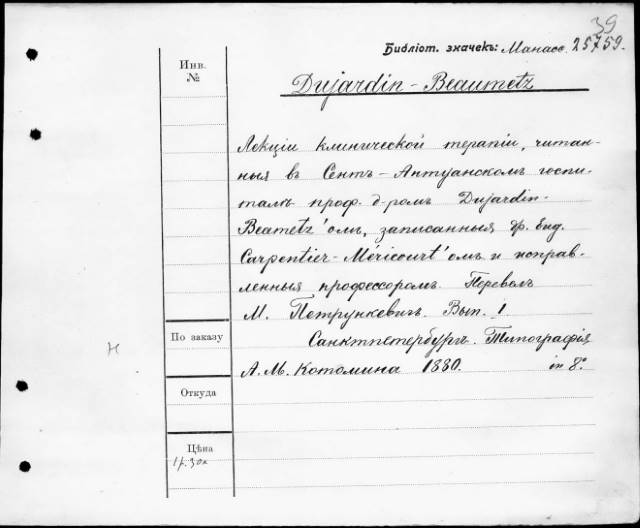 39
Библіот. значекъ: Манасс. 25759.
Инв.
№
Dujardin-Beaumetz
Лекціи клинической терапіи, читан-
ныя въ Сентъ-Антуанскомъ госпи-
талѣ проф. д-ромъ Dujardin-
Beametz'омъ, записанныя
Carpentier-Méricourt'омъ и исправ-
ленныя профессоромъ. Перевелъ
М. Петрункевичъ. Вып. 1
Санктпетербургъ. Типографія
А. М. Котомина 1880. in 8°.
По заказу
н
Откуда
Цѣна
1 р. 30 к